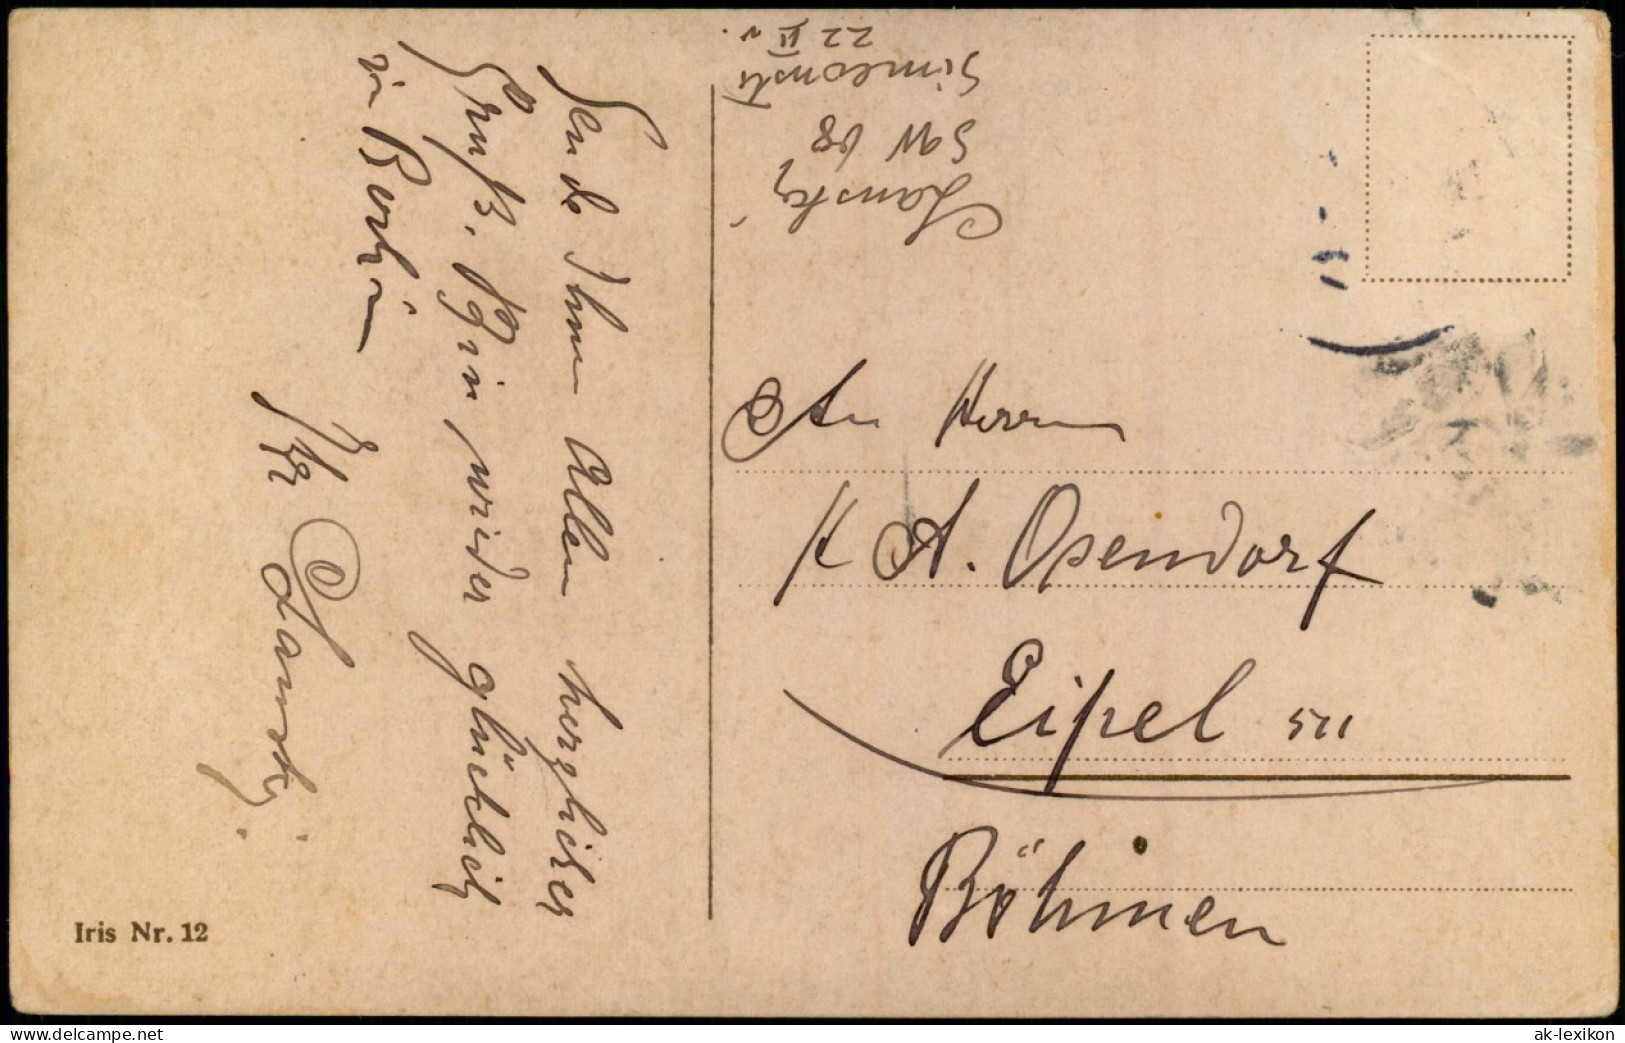 Sende Ihnen Allen herzlicher
Gruß. Bin wieder glücklich
in Berlin
Ihr Lansky.
Lansky
SW 68
Simeonstr
22 II v.
An Herrn
A. Osendorf
Eipel
Böhmen
Iris Nr. 12
delcampe.net
ak-lexikon